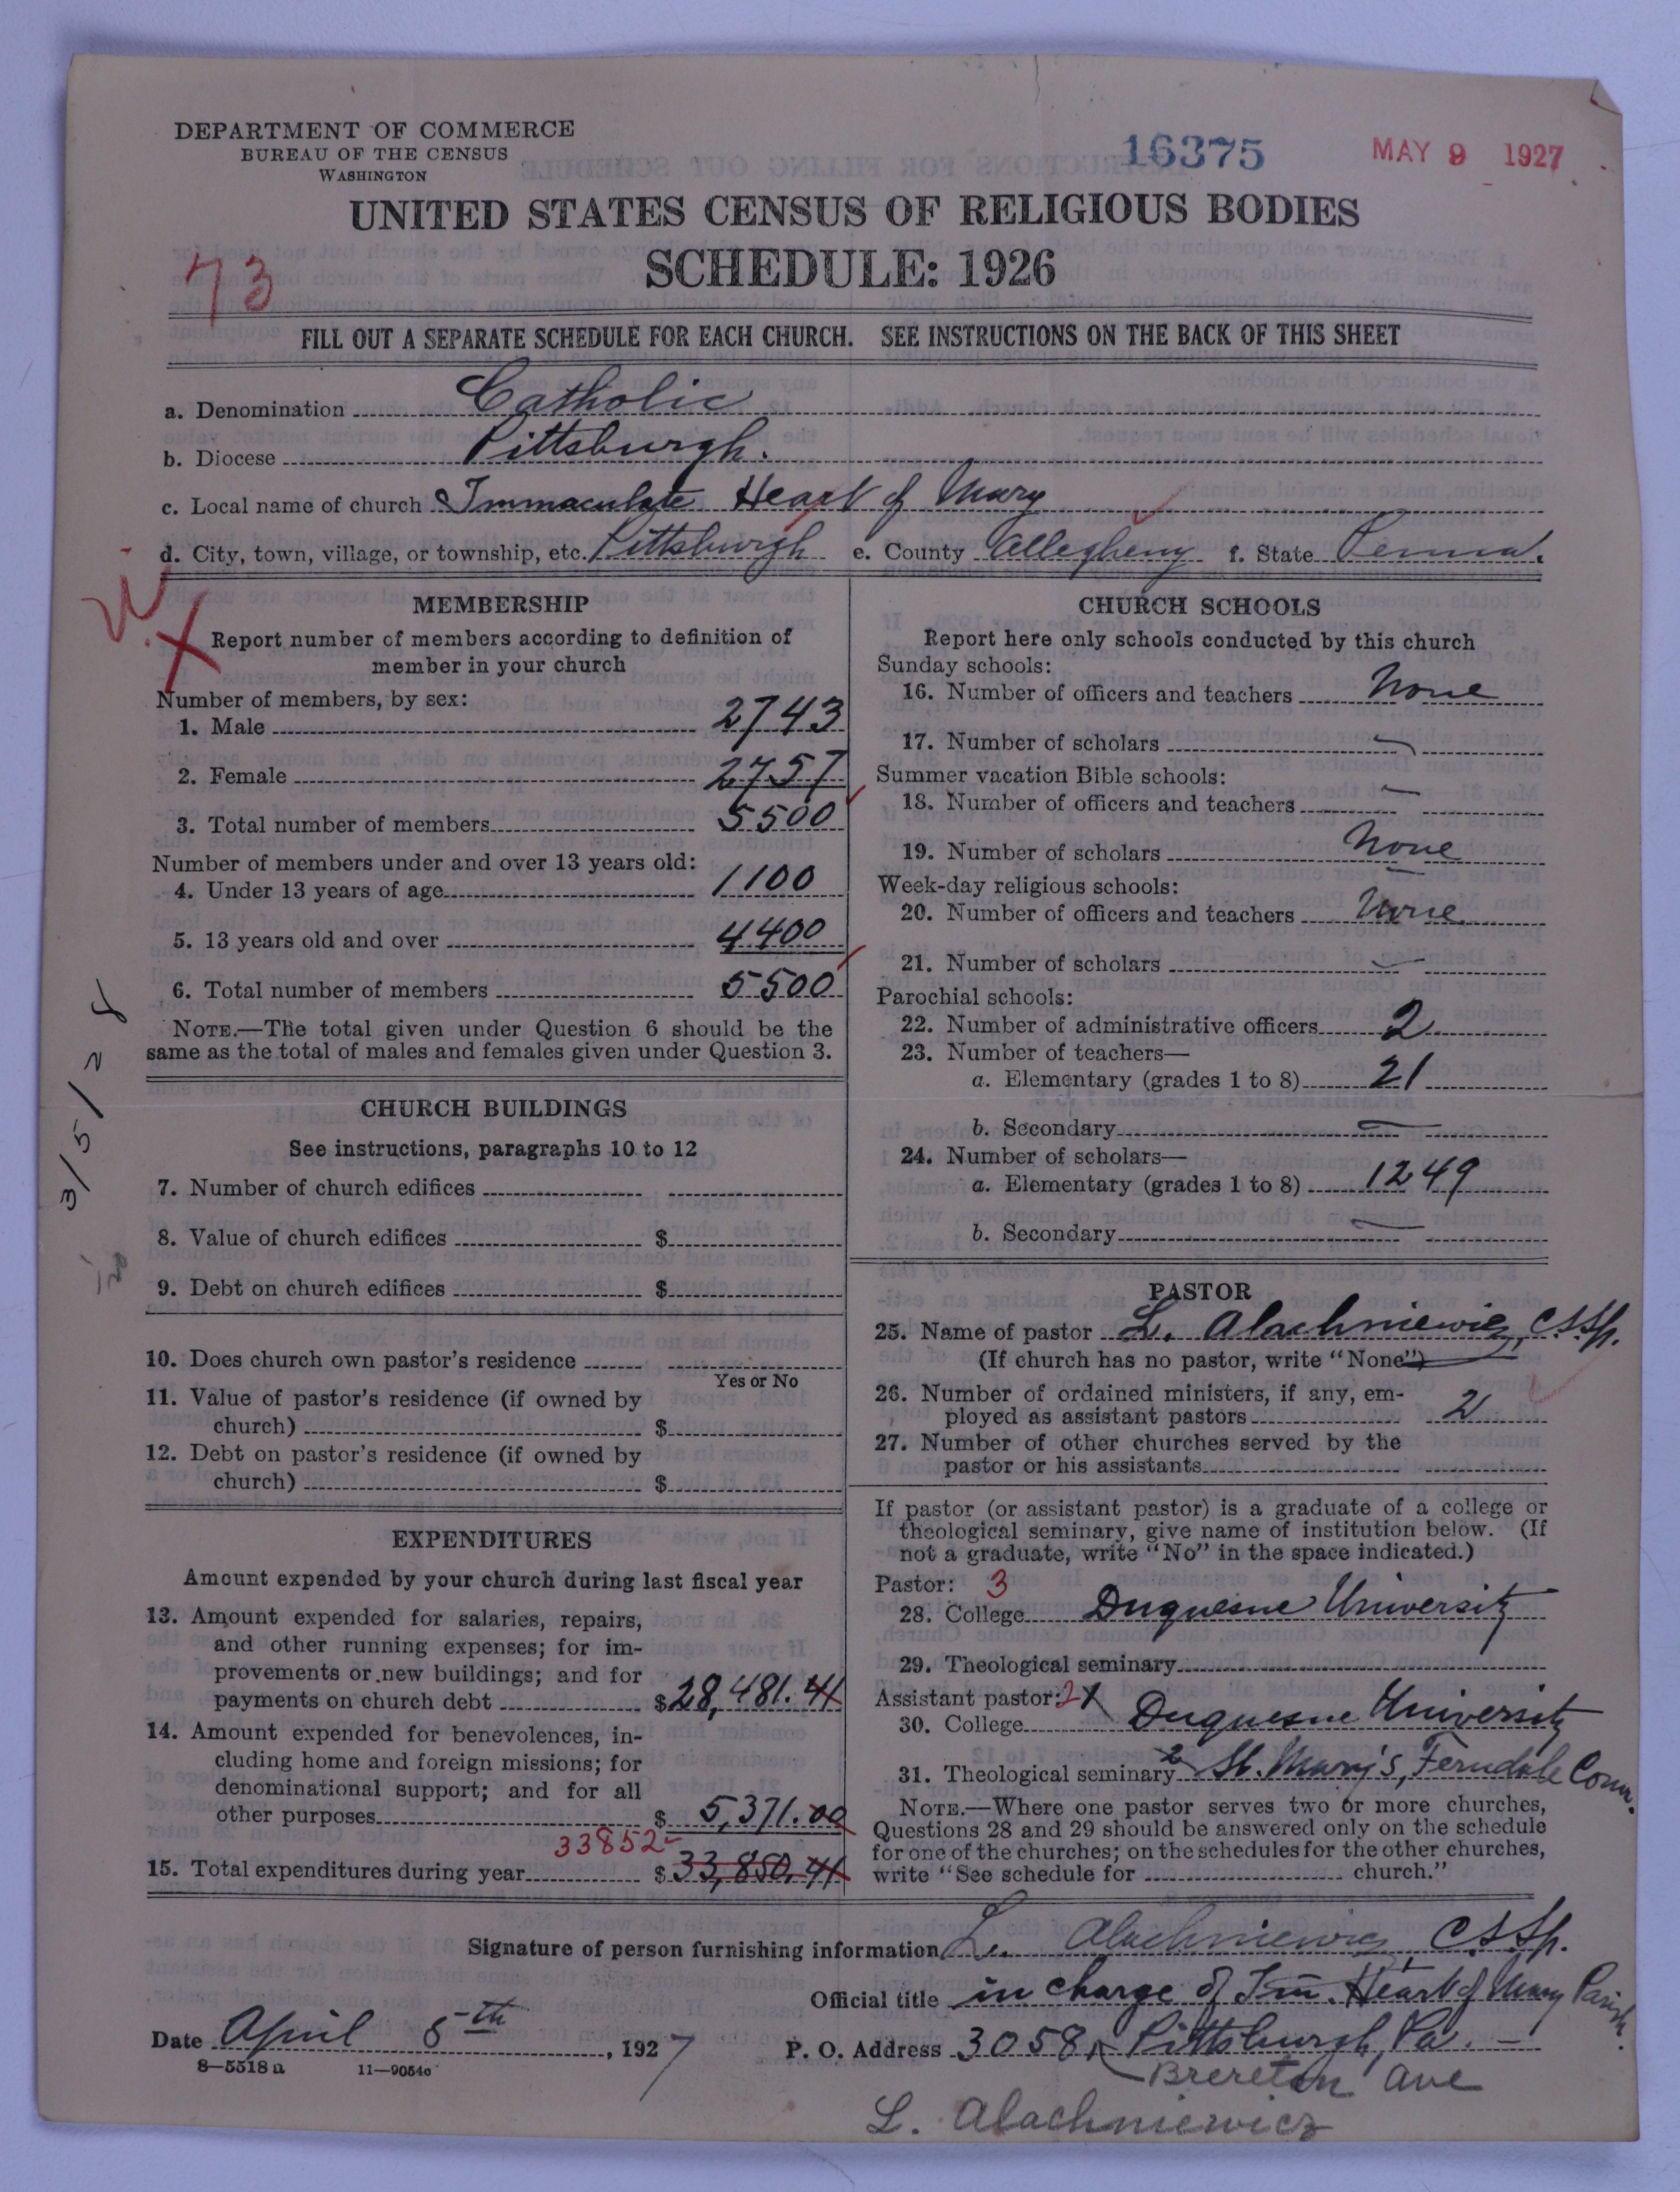 DEPARTMENT OF COMMERCE
BUREAU OF THE CENSUS
WASHINGTON
16375
MAY 9 1927
UNITED STATES CENSUS OF RELIGIOUS BODIES
SCHEDULE: 1926
73
FILL OUT A SEPARATE SCHEDULE FOR EACH CHURCH. SEE INSTRUCTIONS ON THE BACK OF THIS SHEET
a. Denomination Catholic
b. Diocese Pittsburgh.
c. Local name of church Immaculate Heart of Mary
d. City, town, village, or township, etc. Pittsburgh e. County Allegheny f. State Penna.
MEMBERSHIP
Report number of members according to definition of
member in your church
Number of members, by sex:
1. Male 2743
2. Female 2757
3. Total number of members 5500
Number of members under and over 13 years old:
4. Under 13 years of age 1100
5. 13 years old and over 4400
6. Total number of members 5500
NOTE.—The total given under Question 6 should be the
same as the total of males and females given under Question 3.
3/5/28
CHURCH BUILDINGS
See instructions, paragraphs 10 to 12
7. Number of church edifices
8. Value of church edifices $
9. Debt on church edifices $
10. Does church own pastor's residence
Yes or No
11. Value of pastor's residence (if owned by
church) $
12. Debt on pastor's residence (if owned by
church) $
EXPENDITURES
Amount expended by your church during last fiscal year
13. Amount expended for salaries, repairs,
and other running expenses; for im-
provements or new buildings; and for
payments on church debt $28,481.41
14. Amount expended for benevolences, in-
cluding home and foreign missions; for
denominational support; and for all
other purposes $ 5,371.00
33852-
15. Total expenditures during year $33,850.41
CHURCH SCHOOLS
Report here only schools conducted by this church
Sunday schools:
16. Number of officers and teachers None
17. Number of scholars —
Summer vacation Bible schools:
18. Number of officers and teachers —
19. Number of scholars None
Week-day religious schools:
20. Number of officers and teachers None
21. Number of scholars —
Parochial schools:
22. Number of administrative officers 2
23. Number of teachers—
a. Elementary (grades 1 to 8) 21
b. Secondary —
24. Number of scholars—
a. Elementary (grades 1 to 8) 1249
b. Secondary —
PASTOR
25. Name of pastor L. Alachniewicz, C.S.Sp.
(If church has no pastor, write "None")
26. Number of ordained ministers, if any, em-
ployed as assistant pastors 2
27. Number of other churches served by the
pastor or his assistants
If pastor (or assistant pastor) is a graduate of a college or
theological seminary, give name of institution below. (If
not a graduate, write "No" in the space indicated.)
Pastor: 3
28. College Duquesne University
29. Theological seminary
Assistant pastor: 2
30. College Duquesne University
31. Theological seminary 2 St. Mary's, Ferndale Conn.
NOTE.—Where one pastor serves two or more churches,
Questions 28 and 29 should be answered only on the schedule
for one of the churches; on the schedules for the other churches,
write "See schedule for church."
Signature of person furnishing information L. Alachniewicz, C.S.Sp.
Official title in charge of Im. Heart of Mary Parish.
Date April 5th, 1927 P. O. Address 3058, Pittsburgh, Pa. —
Brereton Ave
8—5518 a 11—9054c
L. Alachniewicz